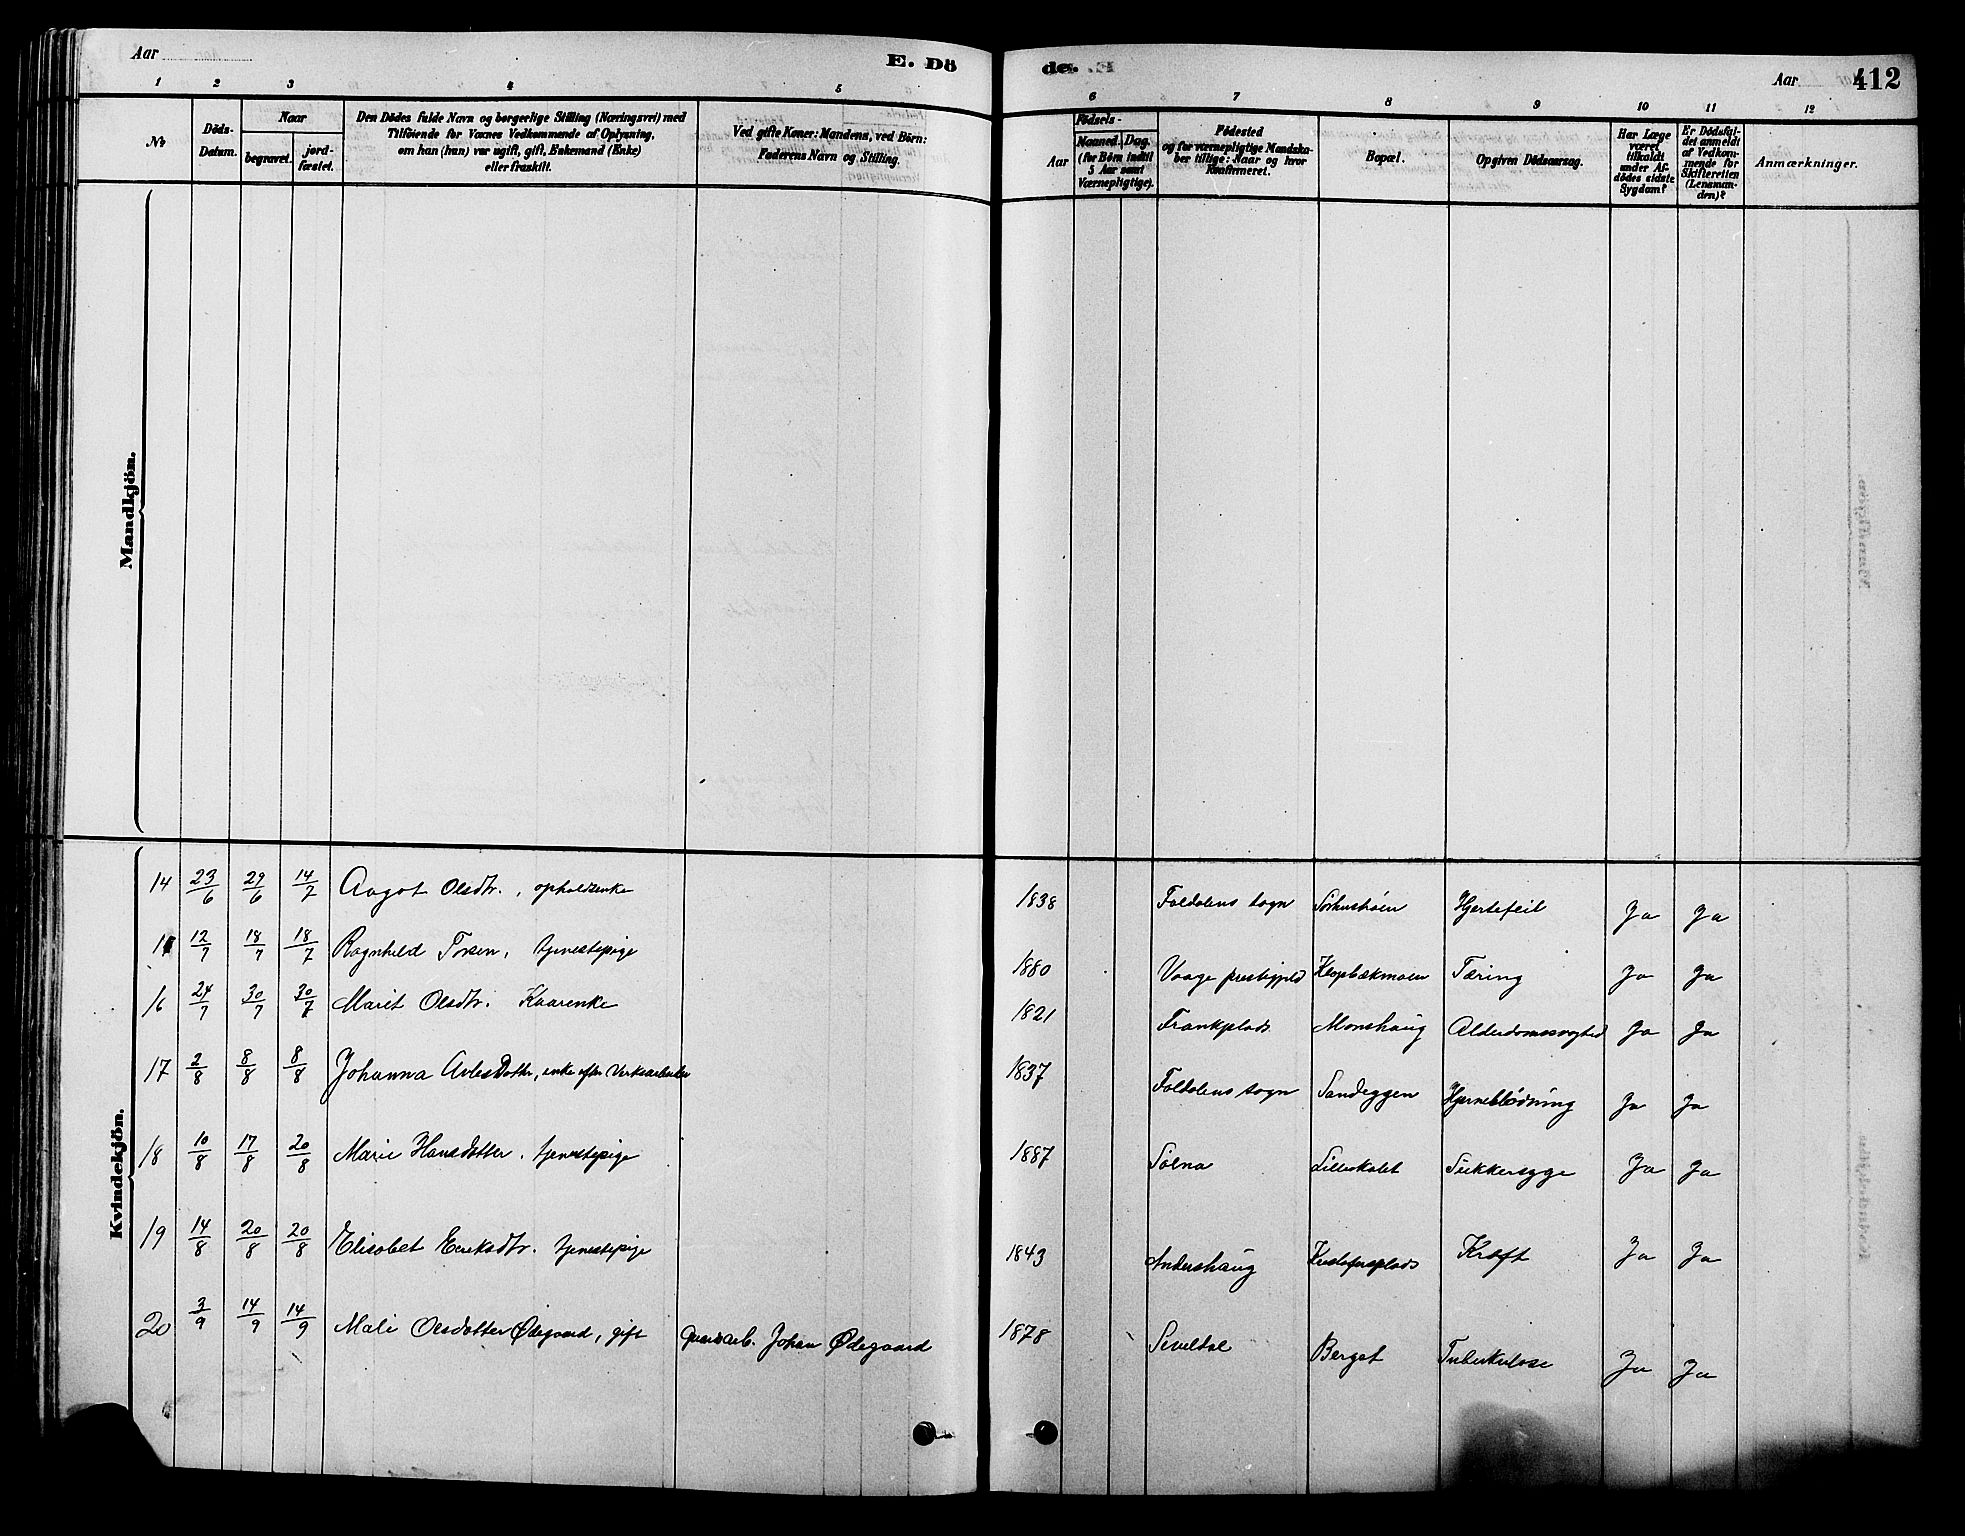 Aar
E. Dö
de.
Aar
412
1 2 3 4 5 6 7 8 9 10 11 12
No
Döds-Datum.
Naar
begravet.
jord-fæstet.
Den Dödes fulde Navn og borgerlige Stilling (Næringsvei) med
Tilföiende for Voxnes Vedkommende af Oplysning,
om han (hun) var ugift, gift, Enkemand (Enke)
eller fraskilt.
Ved gifte Koner: Mandens, ved Börn:
Faderens Navn og Stilling.
Aar
Födsels-
Maaned. Dag.
(for Börn indtil
5 Aar samt
Værnepligtige).
Födested
og for værnepligtige Mandska-
ber tillige: Naar og hvor
Konfirmeret.
Bopæl.
Opgiven Dödsaarsag.
Har Læge
været
tilkaldt
under Af-
dödes sidste
Sygdom?
Er Dödsfal-
det anmeldt
af Vedkom-
mende for
Skifteretten
(Lensman-
den)?
Anmærkninger.
Mandkjön.
Kvindekjön.
14 23/6 29/6 14/7 Aagot Olsdtr., opholdsenke 1838 Foldalens sogn Hjertefeil Ja Ja
12/7 18/7 18/7 Ragnhild Torsen, tjenestepige 1880 Vaage Klopbækmoen Tæring Ja Ja
16 24/7 30/7 30/7 Marit Olsdtr. Kaarenke 1821 Frankplads Monshaug Ja Ja
17 2/8 8/8 8/8 Johanna enke efter Verksarbeider 1837 Foldalens sogn Sandeggen Hjerneblödning Ja Ja
18 10/8 17/8 20/8 Marie Hansdotter, tjenestepige 1887 Sölna Lilleskolet Sukkersyge Ja Ja
19 14/8 20/8 20/8 Elisabet Eriksdtr. tjenestepige 1843 Andershaug Kristofersplads Kræft Ja Ja
20 3/9 14/9 14/9 Mali Olsdotter Ødegaard, gift Johan Ødegaard 1878 Sivildal Berget Tuberkulose Ja Ja